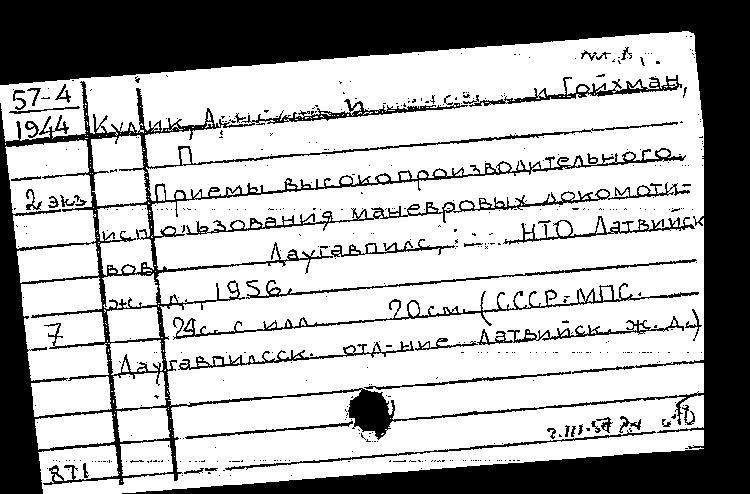 57-4
1944
Кулик, и Гойхман,
П
2 экз Приемы высокопроизводительного
использования маневровых локомоти-
вов. Даугавпилс, НТО Латвийск
ж. д., 1956.
7 24с. с илл. 20см. (СССР. МПС.
Даугавпилсск. отд-ние Латвийск. ж. д.)
2.III-57
871